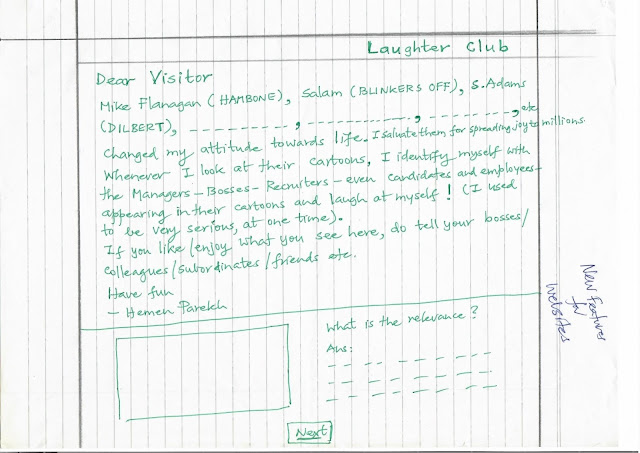 Laughter Club
Dear Visitor
Mike Flanagan (HAMBONE), Salam (BLINKERS OFF), S. Adams
(DILBERT), ----------, ----------, ----------, etc
changed my attitude towards life. I salute them for spreading joy to millions.
Whenever I look at their cartoons, I identify myself with
the Managers - Bosses - Recruiters - even candidates and employees -
appearing in their cartoons and laugh at myself ! (I used
to be very serious, at one time).
If you like/enjoy what you see here, do tell your bosses/
colleagues/subordinates/friends etc.
Have fun
- Hemen Parekh
What is the relevance?
Ans:
Next
New Features
for
Websites